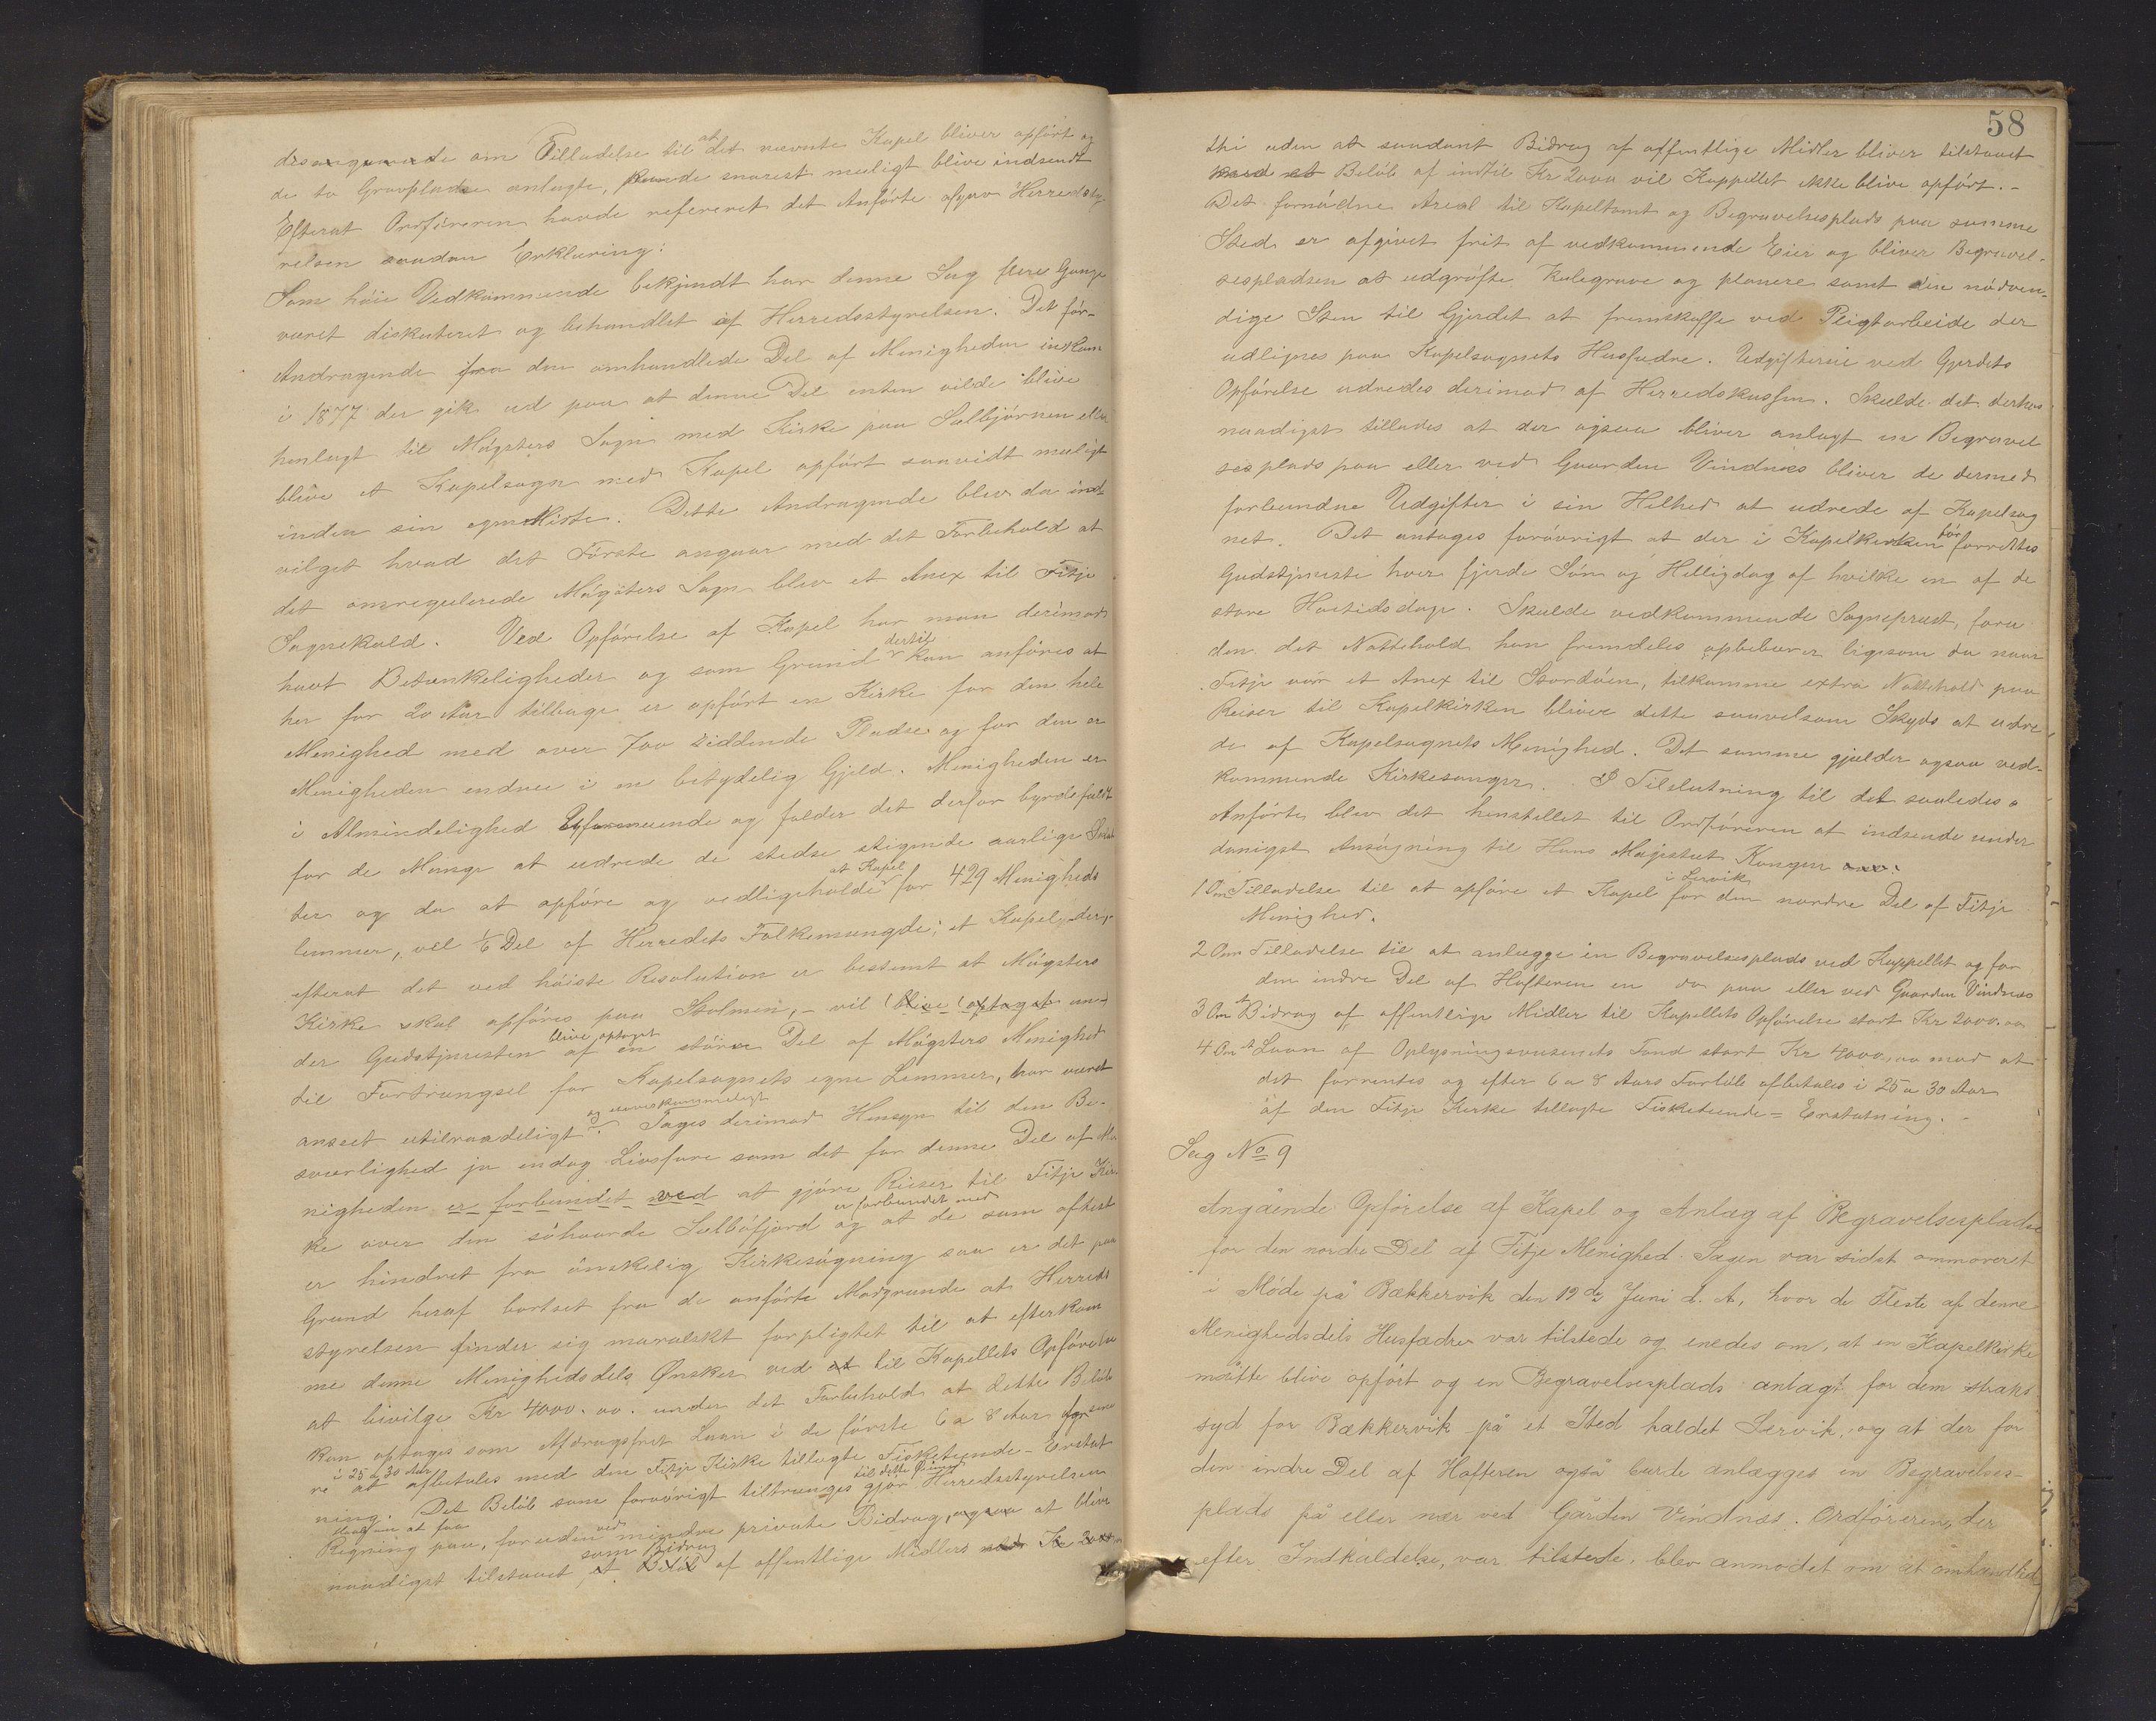 om Tilladelse til at det nævnte Kapel bliver opført og
de to Gravpladse anlagte, kunde snarest muligt blive indsendt
Efterat Ordføreren havde refereret det Anførte afgav Herredsty-
relsen saadan Erklæring:
Som høie Vedkommende bekjendt har denne Sag flere Gange
været diskuteret og behandlet af Herredsstyrelsen. Det før-
Andragende fra den omhandlede Del af Menigheden indkom
i 1877 der gik ud paa at denne Del enten vilde blive
henlagt til Møgsters Sogn med Kirke paa Selbjørnen eller
blive et Kapelsogn med Kapel opført saavidt muligt
inden sin egen Midte. Dette Andragende blev da ind-
vilget hvad det Første angaar med det Forbehold at
det omregulerede Møgsters Sogn blev et Anex til Fitje
Sognekald. Ved Opførelse af Kapel har man derimod
havt Betænkeligheder og som Grund dertil kan anføres at
her for 20 Aar tilbage er opført en Kirke for den hele
Menighed med over 700 siddende Pladse og for den er
Menigheden endnu i en betydelig Gjeld. Menigheden er
i Almindelighed uformuende og falder det derfor byrdefuldt
for de Mange at udrede de stedse stigende aarlige Skat-
ter og da at opføre og vedligeholde et Kapel for 429 Menigheds
lemmer, vel 1/6 Del af Herredets Folkemængde; et Kapel, der,
efterat det ved høieste Resolution er bestemt at Møgsters
Kirke skal opføres paa Stolmen, – vil (blive optaget un-
der Gudstjenesten blive optaget af en større Del af Møgsters Menighed
til Fortrængsel for Kapelsognets egne Lemmer, har været
anseet utilraadeligt og uoverkommeligt. Tages derimod Hensyn til den Be-
sværlighed ja endog Livsfare som det for denne Del af Me-
nigheden er forbundet ved at gjøre Reiser til Fitje Kir-
ke over den søhaarde Selbøfjord er forbundet med og at de som oftest
er hindret fra ønskelig Kirkesøgning saa er det paa
Grund heraf bortset fra de anførte Modgrunde at Herreds
styrelsen finder sig moralskt forpligtet til at efterkom
me denne Menighedsdels Ønsker ved at til Kapellets Opførelse
at bevilge Kr 4000.00. under det Forbehold at dette Beløb
kan optages som Afdragsfrit Laan i de første 6 a 8 Aar for sene
re i 25 a 30 Aar at afbetales med den Fitje Kirke tillagte Fisketiende-Erstat
ning. Det Beløb som forøvrigt tiltrænges til dette Øiemed gjør Herredsstyrelsen
Regning paa, foruden ved mindre private Bidrag, ogsaa at blive
naadigst tilstaaet som Bidrag et Beløb af offentlige Midler
58
thi uden at saadant Bidrag af offentlige Midler bliver tilstaaet
Beløb af indtil Kr 2000 vil Kappellet ikke blive opført. –
Det fornødne Areal til Kapeltomt og Begravelsesplads paa samme
Sted er afgivet frit af vedkommende Eier og bliver Begravel-
sespladsen at udgrøfte kulegrave og planere samt den nødven-
dige Sten til Gjerdet at fremskaffe ved Pligtarbeide der
udlignes paa Kapelsognets Husfædre. Udgifterne ved Gjerdets
Opførelse udredes derimod af Herredskassen. Skulde det derhos
naadigst tillades at der ogsaa bliver anlagt en Begravel
sesplads paa eller ved Gaarden Vindnæs bliver de dermed
forbundne Udgifter i sin Helhed at udrede af Kapelsog
net. Det antages forøvrigt at der i Kapelkirken bør forrettes
Gudstjeneste hver fjerde Søn og Helligdag af hvilke en af de
store Høitidsdage. Skulde vedkommende Sogneprest, foru
den det Nattehold han fremdeles oppebærer ligesom da naar
Fitje var et Anex til Stordøen, tilkomme extra Nattehold paa
Reiser til Kapelkirken bliver dette saavelsom Skyds at udre
de af Kapelsognets Menighed. Det samme gjælder ogsaa ved-
kommende Kirkesanger. I Tilslutning til det saaledes
Anførte blev det henstillet til Ordføreren at indsende under
danigst Ansøgning til Hans Majestæt Kongen
1 Om Tilladelse til at opføre et Kapel i Servik for den nordre Del af Fitje
Menighed.
2 Om Tilladelse til at anlægge en Begravelsesplads ved Kappellet og for
den indre Del af Hufteren en do paa eller ved Gaarden Vindnæs
3 Om et Bidrag af offentlige Midler til Kapellets Opførelse stort Kr 2000.00
4 Om et Laan af Oplysningsvæsenets Fond stort Kr 4000,00 mod at
det forrentes og efter 6 a 8 Aars Forløb afbetales i 25 a 30 Aar
af den Fitje Kirke tillagte Fisketiende = Erstatning. –
Sag No 9
Angående Opførelse af Kapel og Anlæg af Begravelsesplads
for den nordre Del af Fitje Menighed. Sagen var sidst ommoveret
i Møde på Bækkervik den 19de Juni d. A., hvor de Fleste af denne
Menighedsdels Husfædre var tilstede og enedes om, at en Kapelkirke
måtte blive opført og en Begravelsesplads anlagt for dem straks
syd for Bækkervik på et Sted kaldet Servik, og at der for
den indre Del af Hufteren også burde anlægges en Begravelses-
plads på eller nær ved Gården Vindnæs. Ordføreren, der
efter Indkaldelse, var tilstede, blev anmodet om at omhandlede